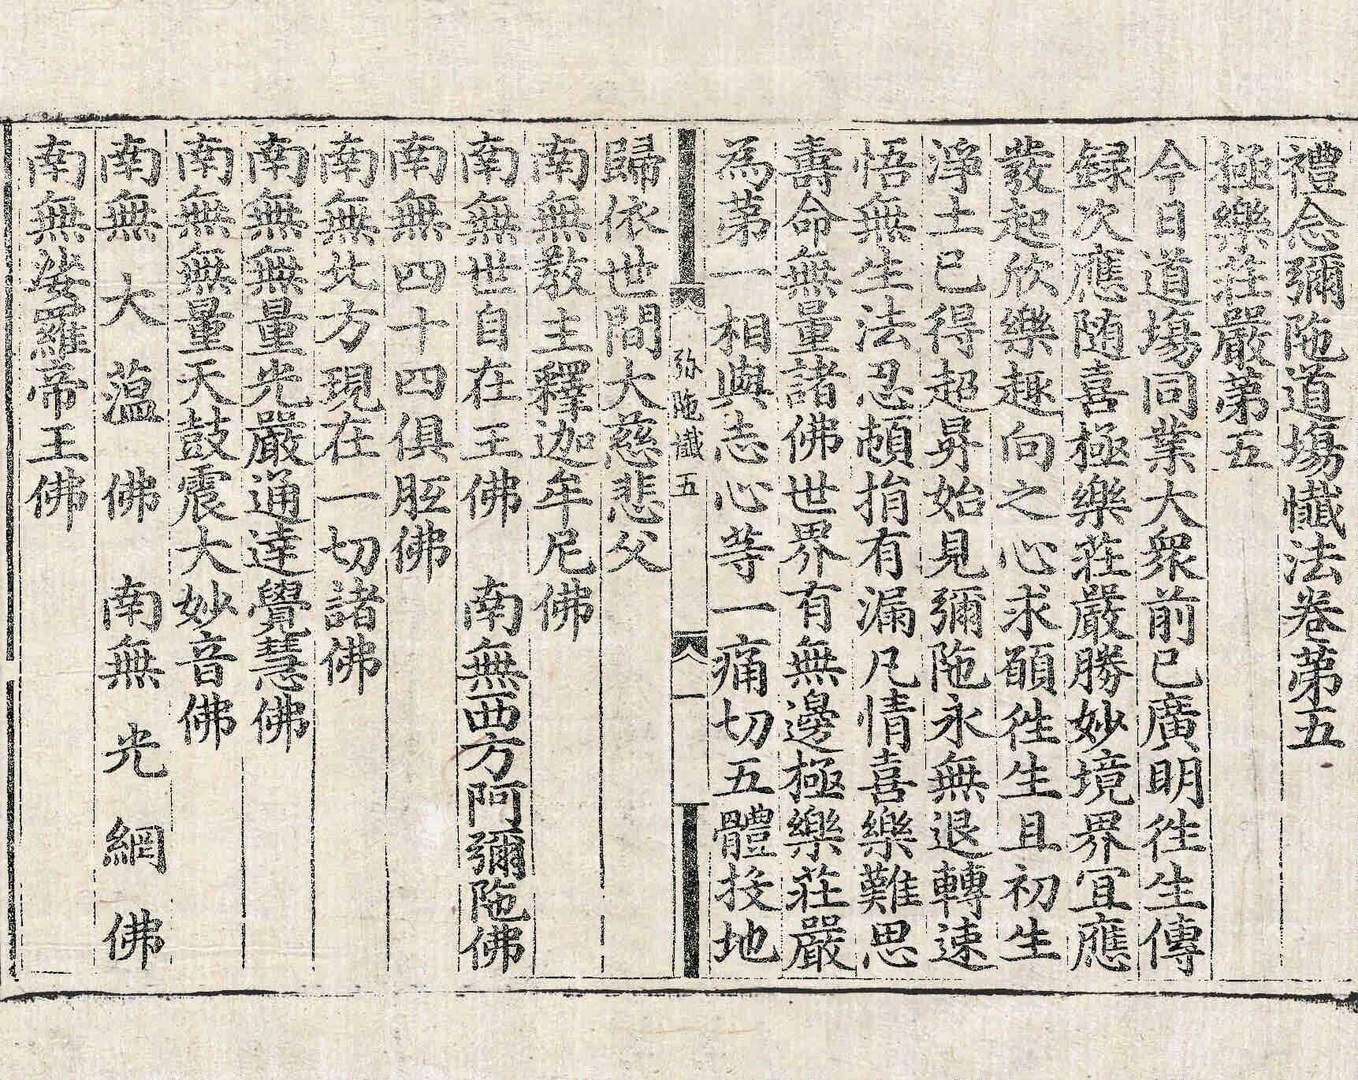 禮念彌陁道塲懴法卷第五
極樂莊嚴第五
今日道塲同業大衆前已廣明徃生傳
録次應随喜極樂莊嚴勝妙境界冝應
發起欣樂趣向之心求願徃生且初生
淨土已得超昇始見彌陁永無退轉速
悟無生法忍頓捐有漏凡情喜樂難思
壽命無量諸佛世界有無邊極樂莊嚴
為第一相與志心等一痛切五體投地
弥陁懴五
一
歸依世間大慈悲父
南無教主釋迦牟尼佛
南無世自在王佛 南無西方阿彌陁佛
南無四十四俱胝佛
南無北方現在一切諸佛
南無無量光嚴通達覺慧佛
南無無量天鼓震大妙音佛
南無大薀佛 南無光網佛
南無娑羅帝王佛